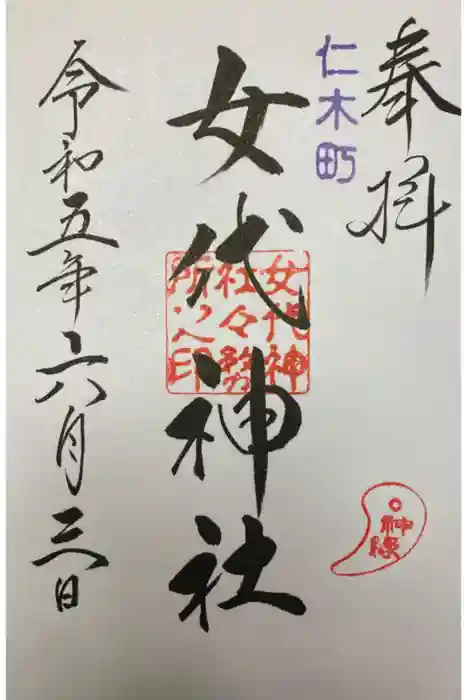 奉拝
仁木町
女代神社
女代神
社々務
所之印
神璽
令和五年六月三日